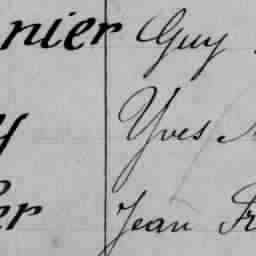 nier Guy
y Yves
er Jean Fr